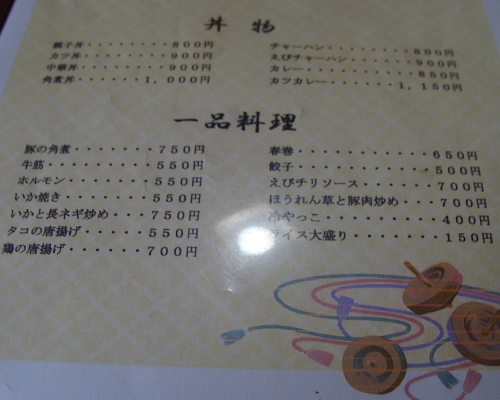 丼物
親子丼・・・・・・・・８００円
カツ丼・・・・・・・・９００円
中華丼・・・・・・・・９００円
角煮丼・・・・・・１，０００円
チャーハン・・・・・・・・８００円
えびチャーハン・・・・・・９００円
カレー・・・・・・・・・・８５０円
カツカレー・・・・・・１，１５０円
一品料理
豚の角煮・・・・・・・７５０円
牛筋・・・・・・・・・５５０円
ホルモン・・・・・・・５５０円
いか焼き・・・・・・・５５０円
いかと長ネギ炒め・・・７５０円
タコの唐揚げ・・・・・５５０円
鶏の唐揚げ・・・・・・７００円
春巻・・・・・・・・・・６５０円
餃子・・・・・・・・・・５００円
えびチリソース・・・・・７００円
ほうれん草と豚肉炒め・・７００円
冷やっこ・・・・・・・・４００円
ライス大盛り・・・・・・１５０円